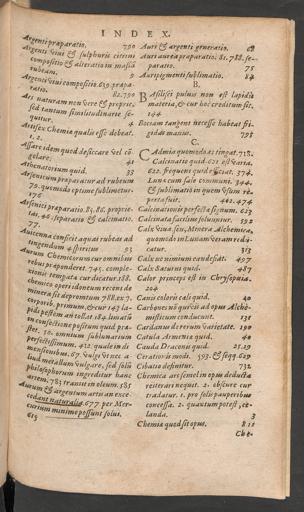 INDEX.
Argenti præparatio. 790
Argenti vivi & sulphuris citrini
compositio & alteratio in massã
rubeam. 9
Argenti vivi compositio. 639. præpa-
ratio. 82.790
Ars naturam non vere & proprie,
sed tantum similitudinarie se-
quitur.
Artifex Chemiæ qualis esse debeat.
1. 2.
Assare idem quod desiccare vel cõ-
gelare. 41
Athenatorium quid. 33
Arsenicum præparatur ad rubeum
79. quomodo optime sublimetur.
176
Arsenici præparatio. 83. 86. proprie-
tas, 46. separatio & calcinatio.
77.
Avicenna conficit aquas rubeas ad
tingendum asstricem 93
Aurum Chemicorum cur omnibus
rebus præponderet. 745. comple-
xionis temperatæ cur dicatur. 188.
chemico operi idoneum recens de
minera sit depromtum 788. ex 7.
corporib. primum, & cur 143 la-
pides pestem aut tollat 184. Imo aut
in confectione positum quid præ-
stet. 50. omnium sublunarium
perfectissimum. 412. qualem in di-
mensionibus. 67. Vulgi et nec a-
liud metallum vulgare, sed solis
philosophorum ingreditur hanc
artem. 783 transit in oleum. 585
Aurum & argentum artis an exce-
dant naturalia. 677 per Mer-
curium minime possunt solvi.
613
Auri & argenti generatio. 68
Auri aurea præparatio. 81.788. se-
paratio. 75
Auripigmenti sublimatio. 84
B.
Basilisci pulvis non est lapidis
materia, & cur hoc creditum sit.
144
Botiam tangens necesse habeat fri-
gidas manus. 798
C.
Cadmia quomodo æs tingat. 718.
Calcinatio quid. 621 est varia.
622. frequens quid efficiat. 374.
Lunæ cum sale communi. 944.
& sublimatio in quem usum re-
perta fuit. 402.474
Calcinationis perfectæ signum. 623
Calcinata facilime solvuntur. 192
Calx viva seu, Minera Alchemica,
quomodo in Lunam veram redi-
catur. 313
Calx ne nimium tendefiat. 497
Calx Saturni quid. 487
Calor princeps est in Chrysopœia.
204
Canis coloris cæli quid. 40
Carbones quercini ad opus Alche-
misticum conducunt. 131
Cardanus de rerum varietate. 190
Catula Armeniæ quid. 40
Cauda Draconis quid. 25.29
Cerationis modi. 593. & seqq 629
Cibatio definitur. 732
Chemica ars semel in opus deducta
reiterari nequit. 2. obscure cur
tradatur. 1. pro solis pauperibus
concessa. 2. quantum potest, ce-
landa. 3
Chemia quod sit opus. 811
Che-